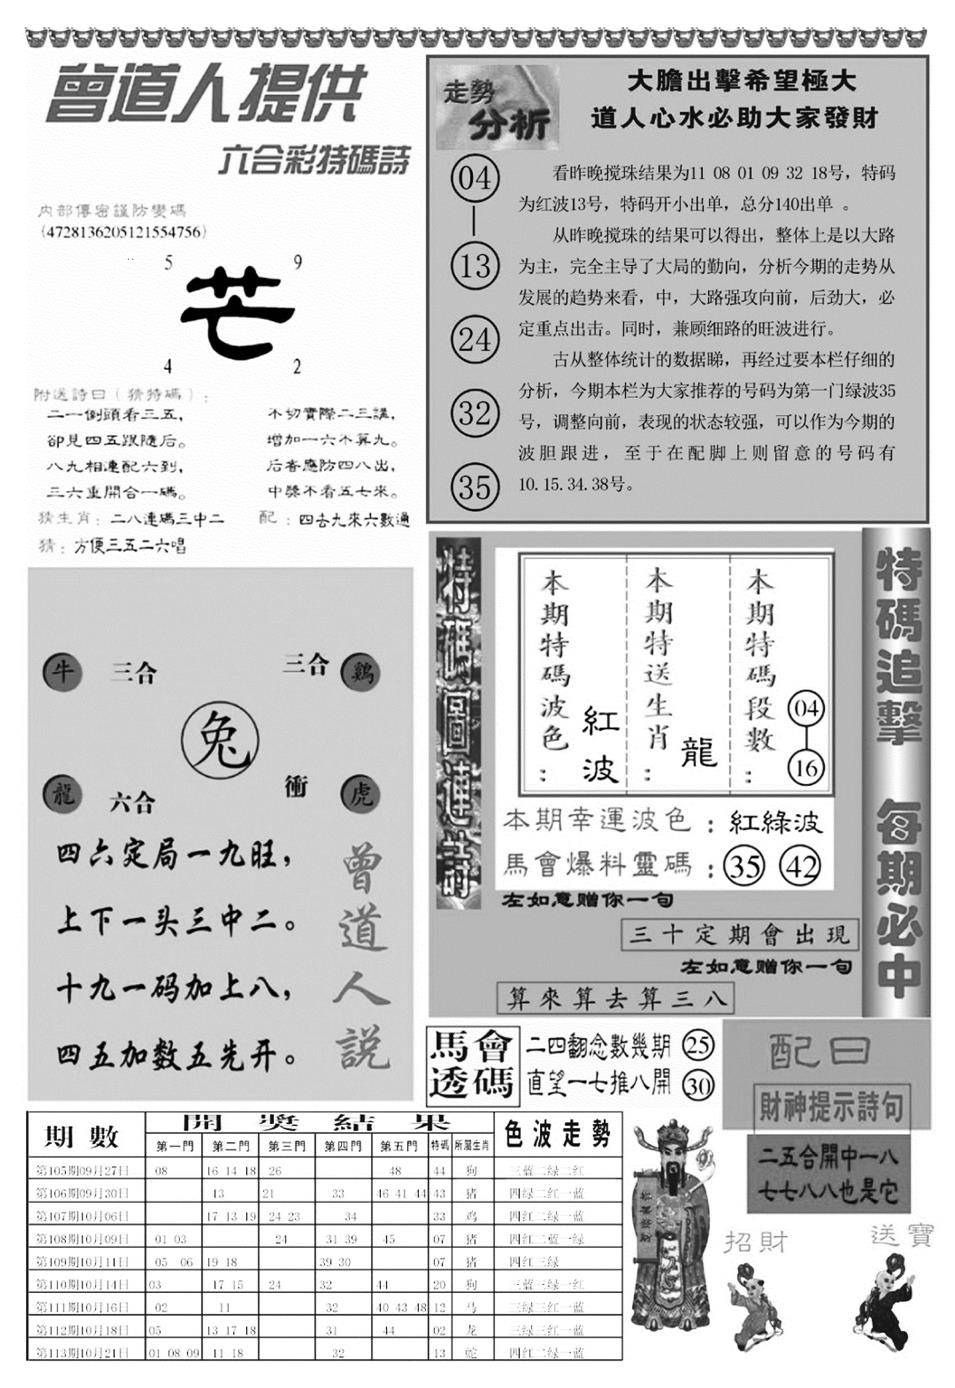 曾道人提供
六合彩特碼詩
内部傳密謹防變碼
（4728136205121554756）
5 9
芒
4 2
附送詩曰（猜特碼）：
二一倒頭看三五， 不切實際二三講，
卻見四五跟隨后。 增加一六不算九。
八九相連配六到， 后看應防四八出，
三六重開合一碼。 中獎不看五七來。
猜生肖：二八連碼三中二 配：四去九來六數通
猜：方便三五二六唱
走勢
分析
大膽出擊希望極大
道人心水必助大家發財
04
13
24
32
35
看昨晚搅珠结果为11 08 01 09 32 18号，特码
为红波13号，特码开小出单，总分140出单 。
从昨晚搅珠的结果可以得出，整体上是以大路
为主，完全主导了大局的勤向，分析今期的走势从
发展的趋势来看，中，大路强攻向前，后劲大，必
定重点出击。同时，兼顾细路的旺波进行。
古从整体统计的数据睇，再经过要本栏仔细的
分析，今期本栏为大家推荐的号码为第一门绿波35
号，调整向前，表现的状态较强，可以作为今期的
波胆跟进，至于在配脚上则留意的号码有
10.15.34.38号。
牛 三合 三合 鷄
兔
龍 六合 衝 虎
四六定局一九旺，
上下一头三中二。
十九一码加上八，
四五加数五先开。
曾道人説
本期特碼波色：紅波
本期特送生肖：龍
本期特碼段數：04 16
本期幸運波色：紅綠波
馬會爆料靈碼：35 42
左如意赠你一句
三十定期會出現
左如意赠你一句
算來算去算三八
特碼追擊 每期必中
馬會透碼
二四翻念數幾期 25
直望一七推八開 30
配曰
財神提示詩句
二五合開中一八
七七八八也是它
招財
送寶
期數 開獎結果 色波走勢
第一門 第二門 第三門 第四門 第五門 特碼 所屬生肖
第105期09月27日 08 16 14 18 26 48 44 狗 三蓝二绿二红
第106期09月30日 13 21 33 46 41 44 43 猪 四绿二红一蓝
第107期10月06日 17 13 19 24 23 34 33 鸡 四红二绿一蓝
第108期10月09日 01 03 24 31 39 45 07 猪 四红二蓝一绿
第109期10月11日 05 06 19 18 39 30 07 猪 四红三绿
第110期10月14日 03 17 15 24 32 44 20 狗 三蓝三绿一红
第111期10月16日 02 11 32 40 43 48 12 马 三绿三红一蓝
第112期10月18日 05 13 17 18 31 44 02 龙 三绿三红一蓝
第113期10月21日 01 08 09 11 18 32 13 蛇 四红二绿一蓝